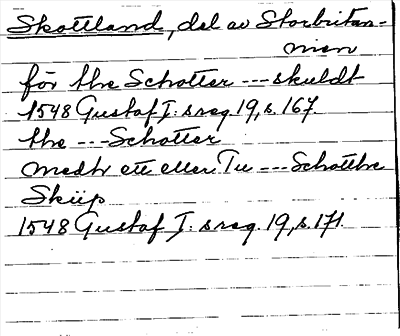 Skottland, del av Storbritan-
nien
för the Schotter --- skuldt
1548 Gustaf I:s reg. 19, s. 167.
the --- Schotter
medh ett eller Tu --- Schottke
Skiip
1548 Gustaf I:s reg. 19, s. 171.